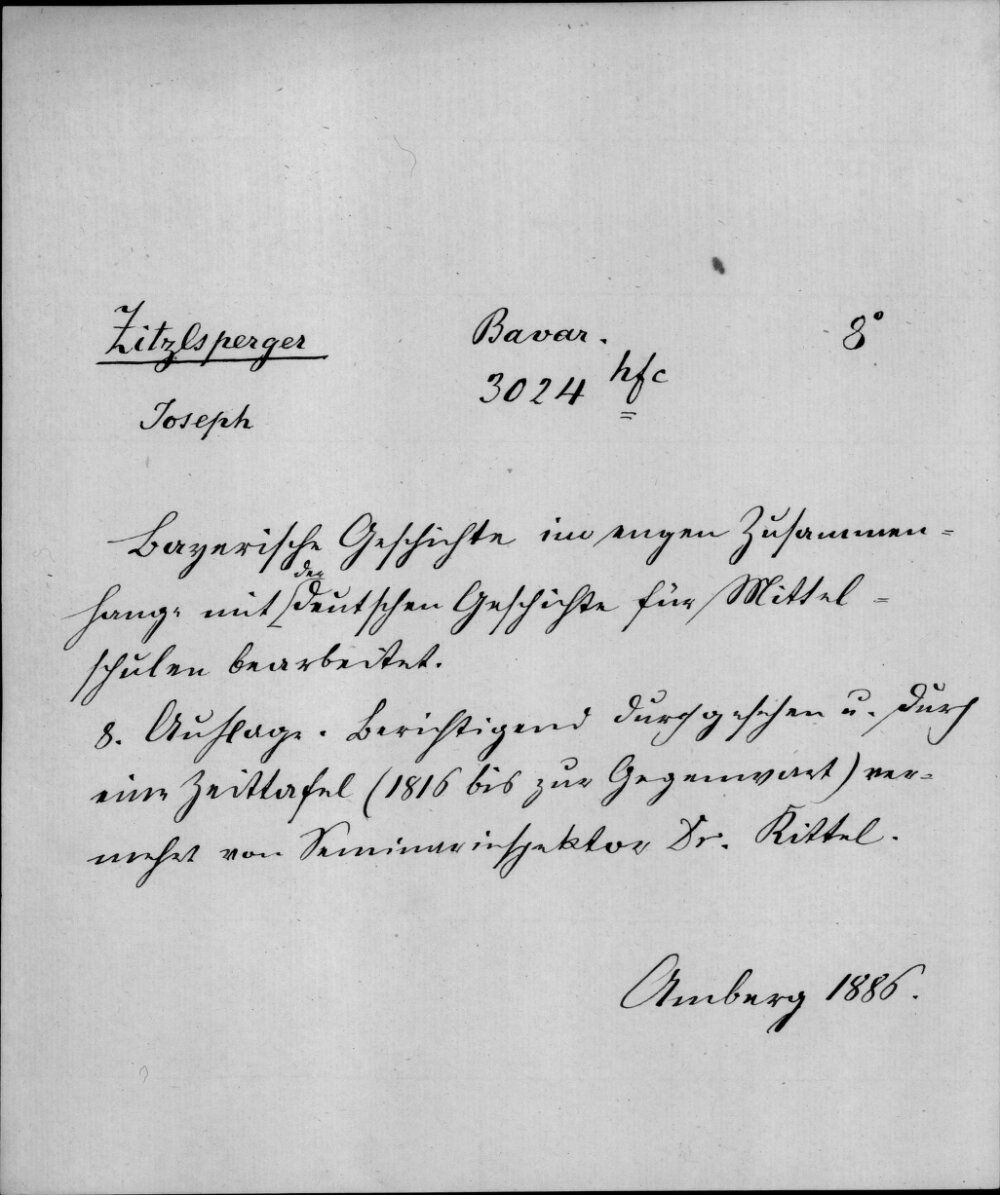 Zitzlsperger Bavar. 8°
3024 hfc
Joseph
Bayerische Geschichte im engen Zusammen=
hange mit der deutschen Geschichte für Mittel=
schulen bearbeitet.
8. Auflage. Berichtigend durchgesehen u. durch
eine Zeittafel (1816 bis zur Gegenwart) ver=
mehrt von Seminarinspektor Dr. Kittel.
Amberg 1886.